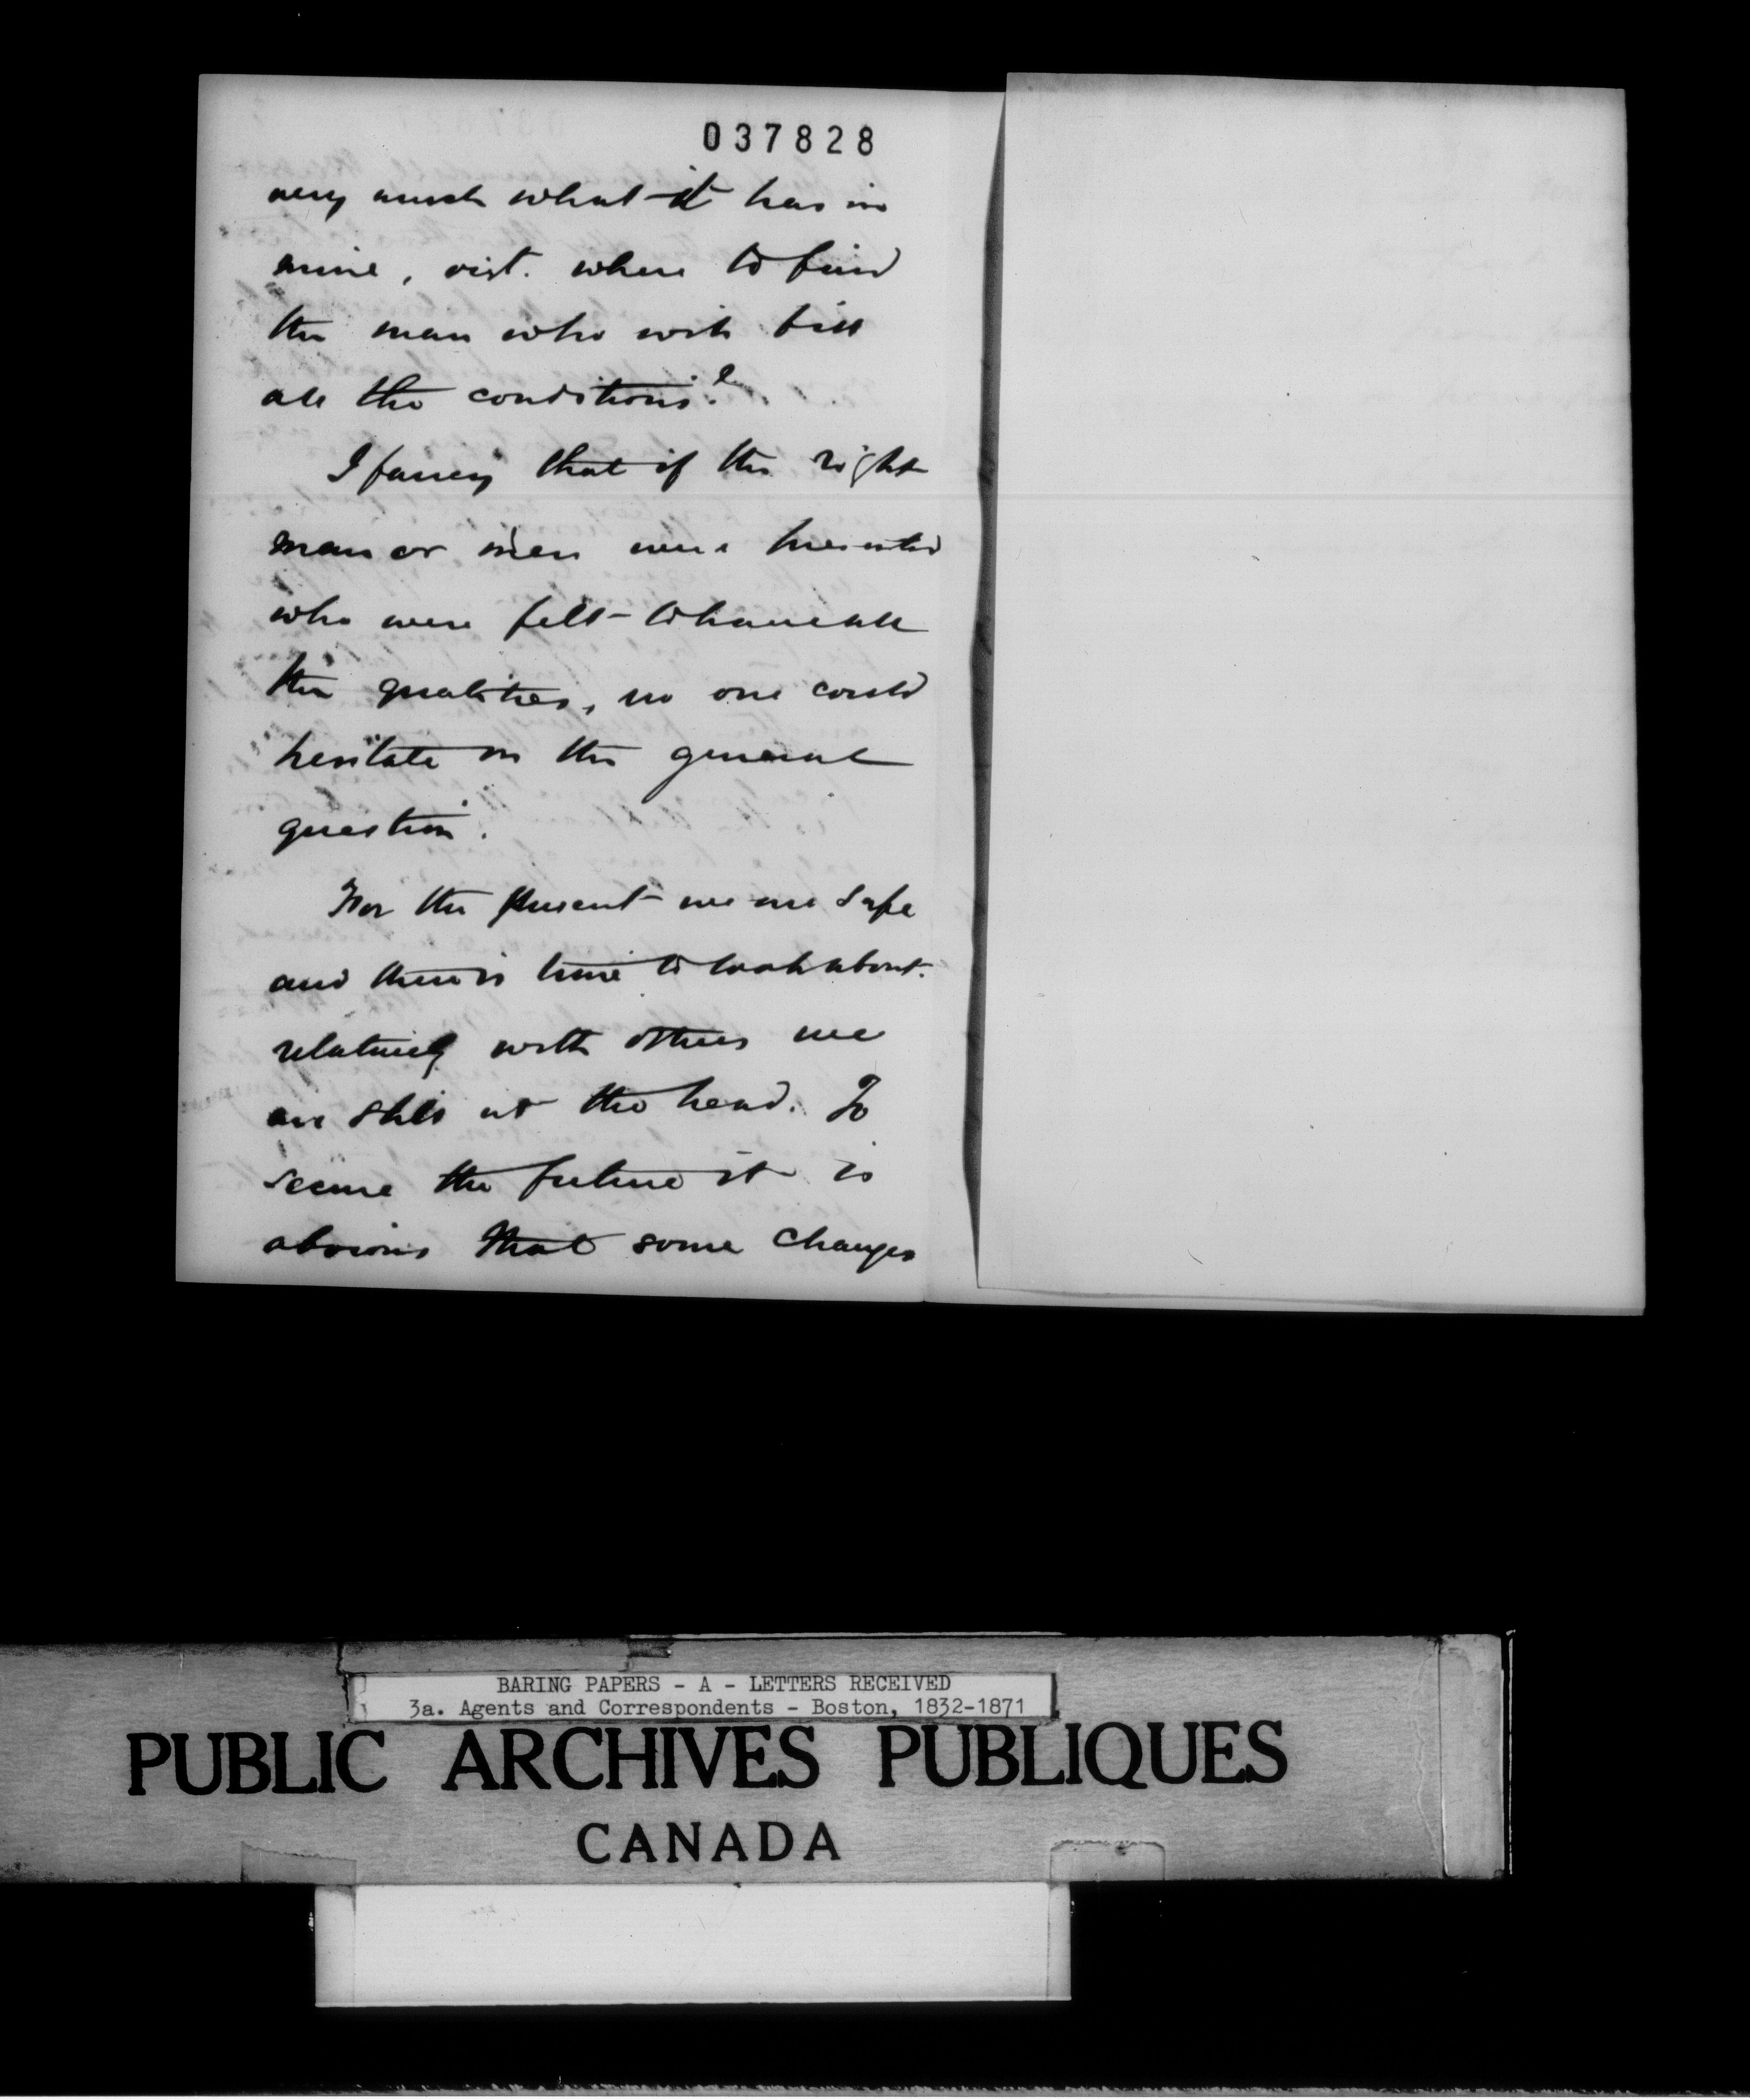 037828
very much what it has in
mine, vizt. where to find
the man who will fill
all the conditions?
I fancy that if the right
man or men were presented
who were felt to have all
the qualities, no one could
hesitate on the general
question.
For the present we are safe
and there is time to look about.
relatively with others we
are still at the head. To
secure the future it is
obvious that some changes
BARING PAPERS - A - LETTERS RECEIVED
3a. Agents and Correspondents - Boston, 1832-1871
PUBLIC ARCHIVES PUBLIQUES
CANADA